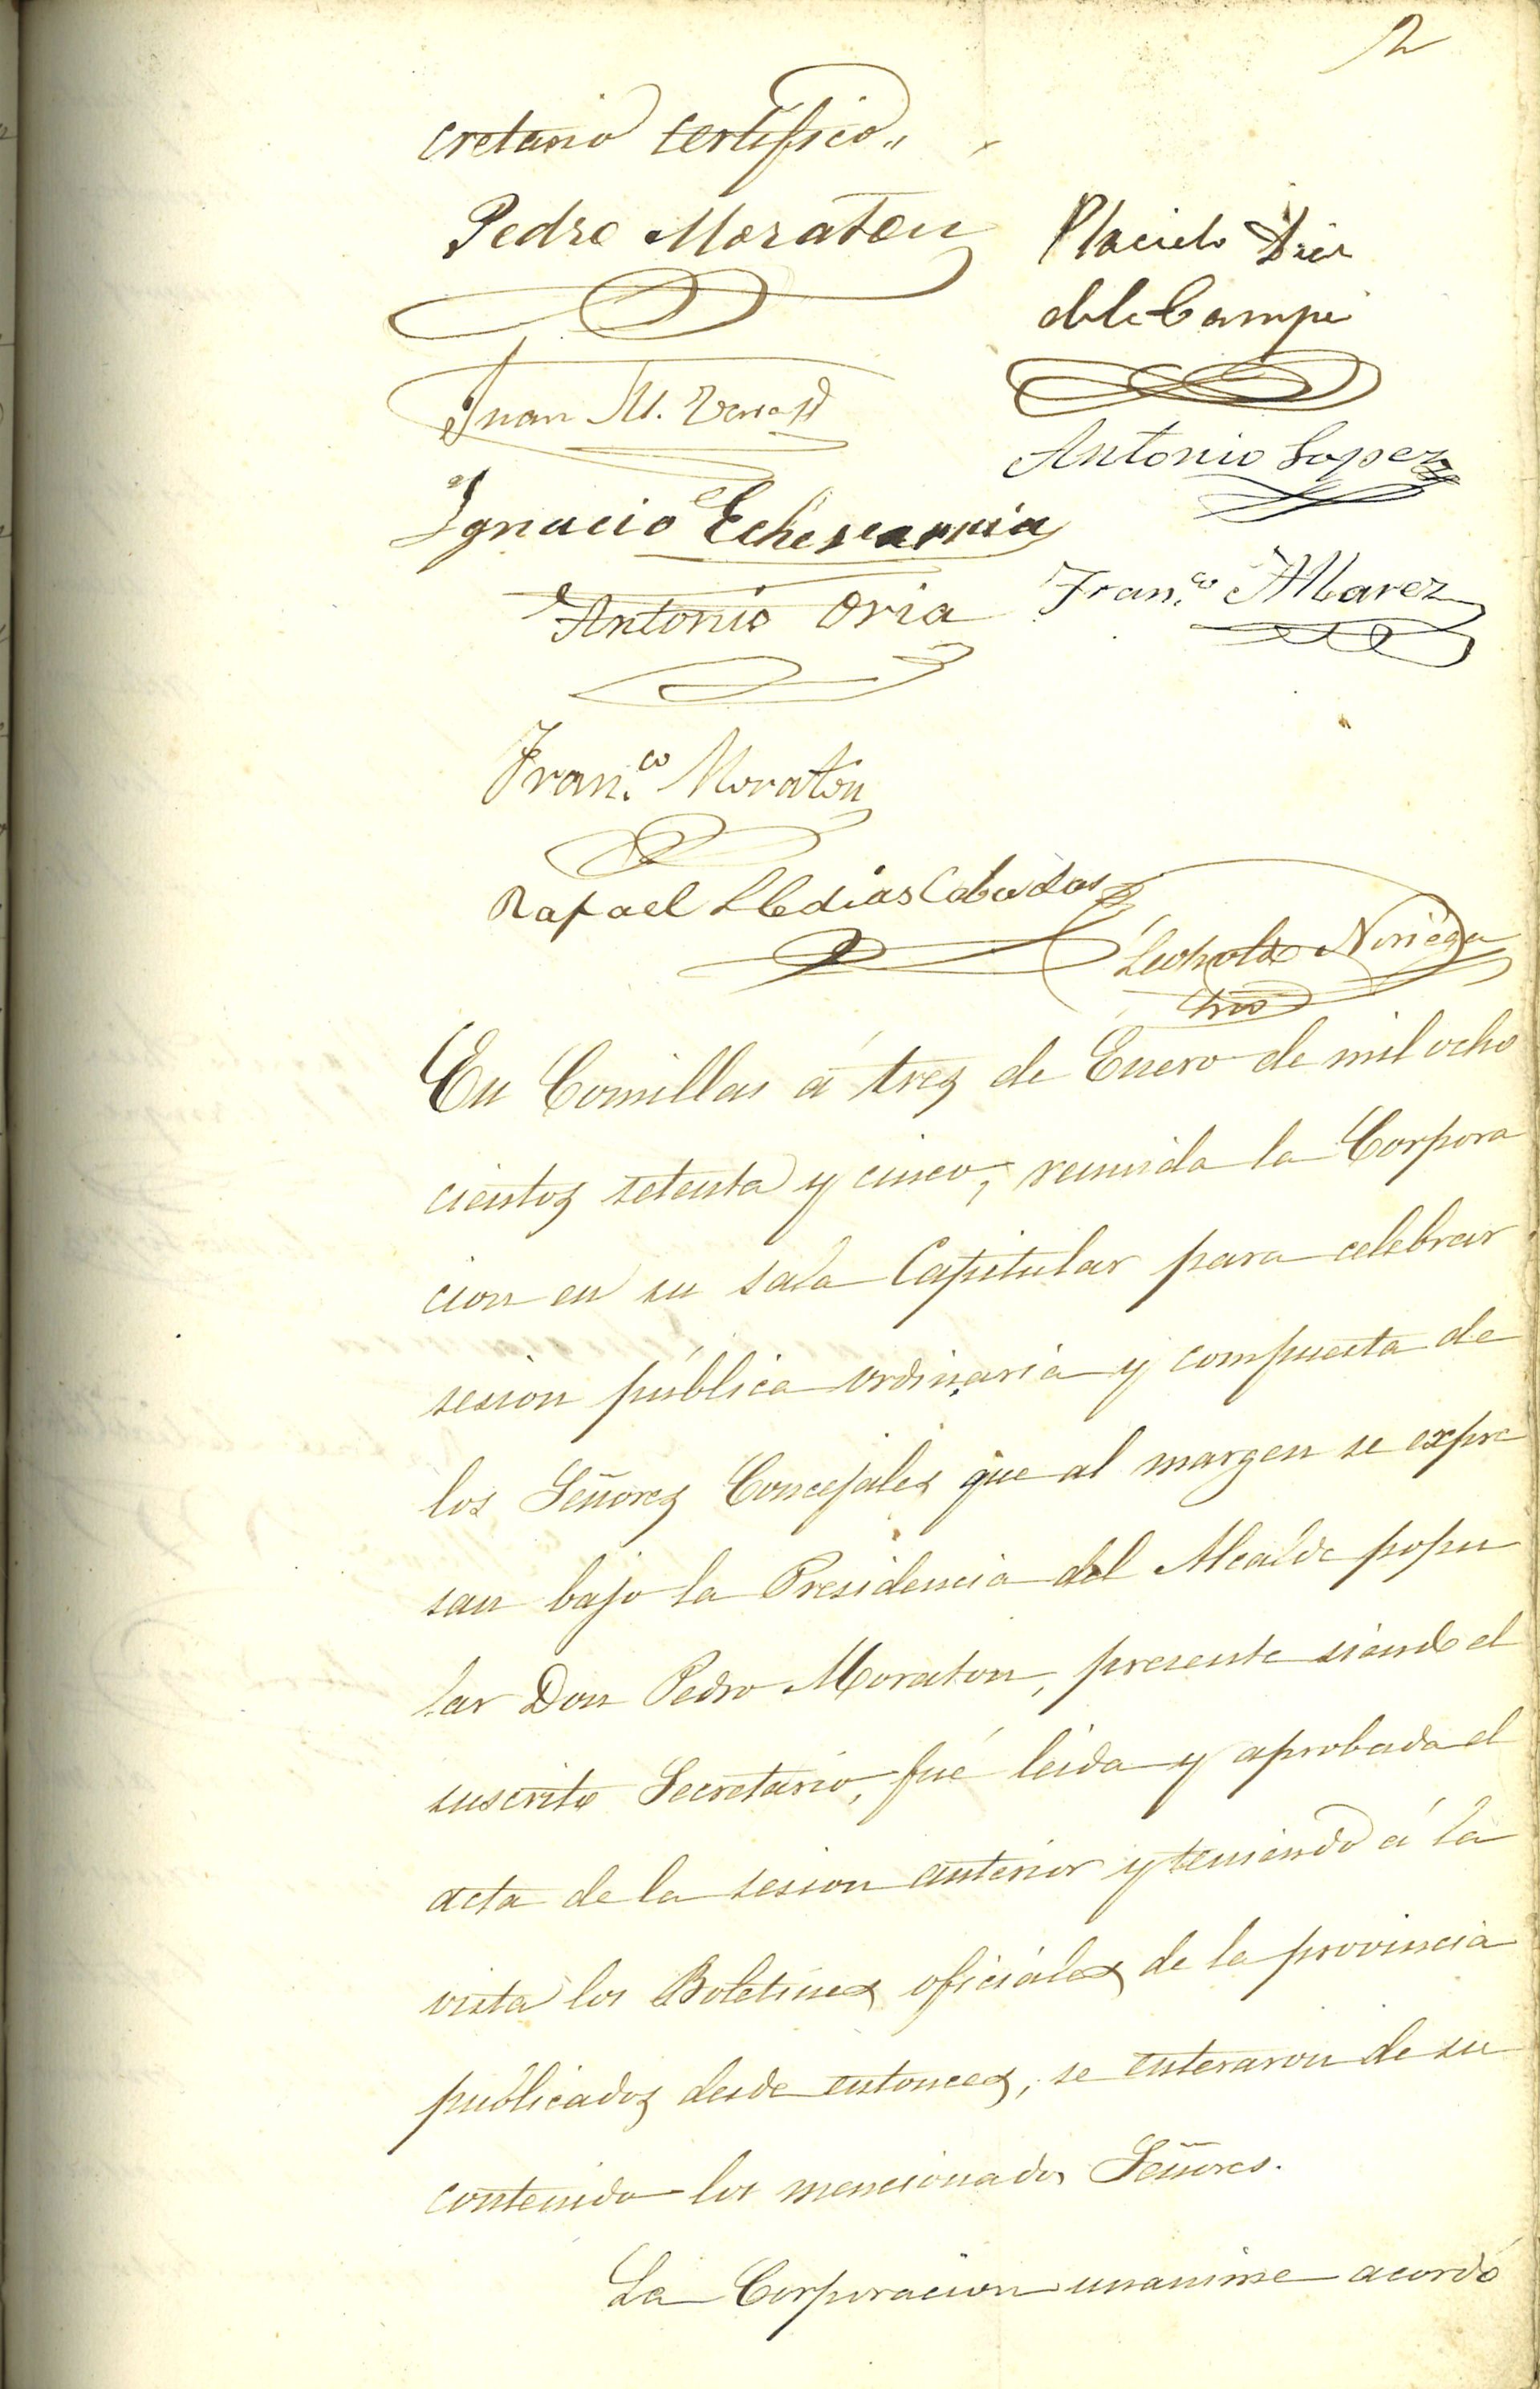 2
cretario certifico,,
Pedro Moraton
Placido Diez
de la Campa
Juan M.
Antonio Lopez
Ignacio Echevarria
Antonio Oria
Fran.co Alvarez
Fran.co Moratón
Rafael Lledias Cabadas
Leopoldo Noriega
Srio
En Comillas á tres de Enero de mil ocho
cientos setenta y cinco, reunida la Corpora
cion en su sala Capitular para celebrar
sesion pública ordinaria y compuesta de
los Señores Concejales que al margen se expre
san bajo la Presidencia del Alcalde popu
lar Don Pedro Moraton, presente siendo el
suscrito Secretario, fué leida y aprobada el
acta de la sesion anterior y teniendo á la
vista los Boletines oficiales de la provincia
publicados desde entonces, se enteraron de su
contenido los mencionados Señores.
La Corporacion unanime acordó